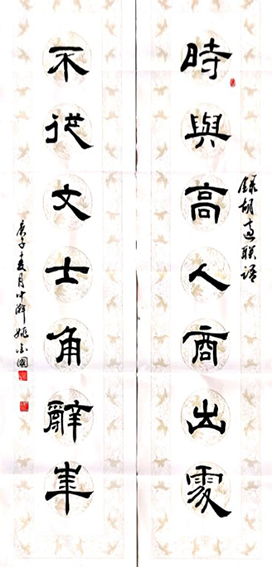 時與高人商出處
錄胡聯語
不從文士角辭華
庚子夏月中澣姚國